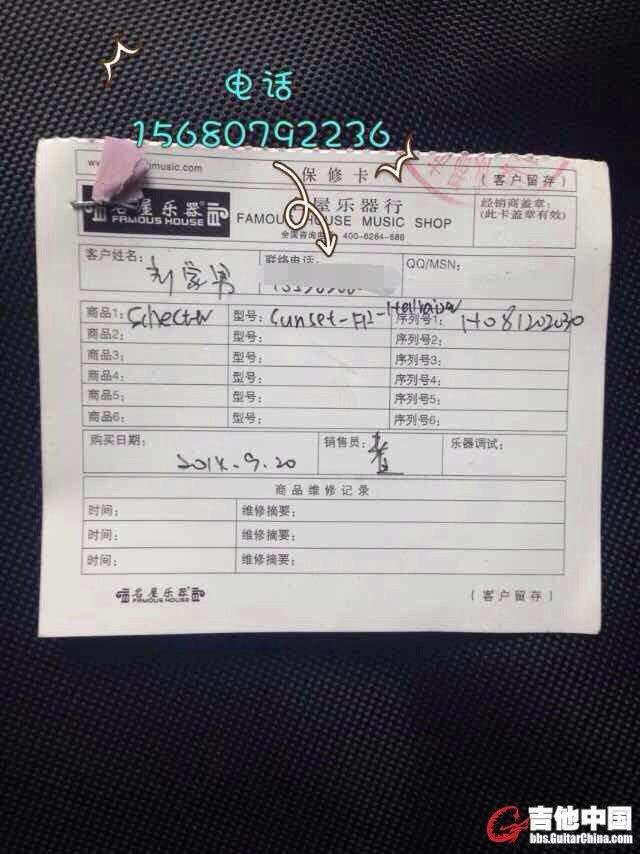 电话
15680792236
保修卡
(客户留存)
名屋乐器
FAMOUS HOUSE
屋乐器行
FAMOUS HOUSE MUSIC SHOP
全国咨询电话 400-6264-686
经销商盖章:
(此卡盖章有效)
客户姓名:
联络电话:
QQ/MSN:
商品1: Schecter 型号: Sunset-FR-Hellraiser 序列号1: H081202030
商品2: 型号: 序列号2:
商品3: 型号: 序列号3:
商品4: 型号: 序列号4:
商品5: 型号: 序列号5:
商品6: 型号: 序列号6:
购买日期: 销售员: 乐器调试:
2014.9.20
商品维修记录
时间: 维修摘要:
时间: 维修摘要:
时间: 维修摘要:
名屋乐器
FAMOUS HOUSE
(客户留存)
吉他中国
bbs.GuitarChina.com